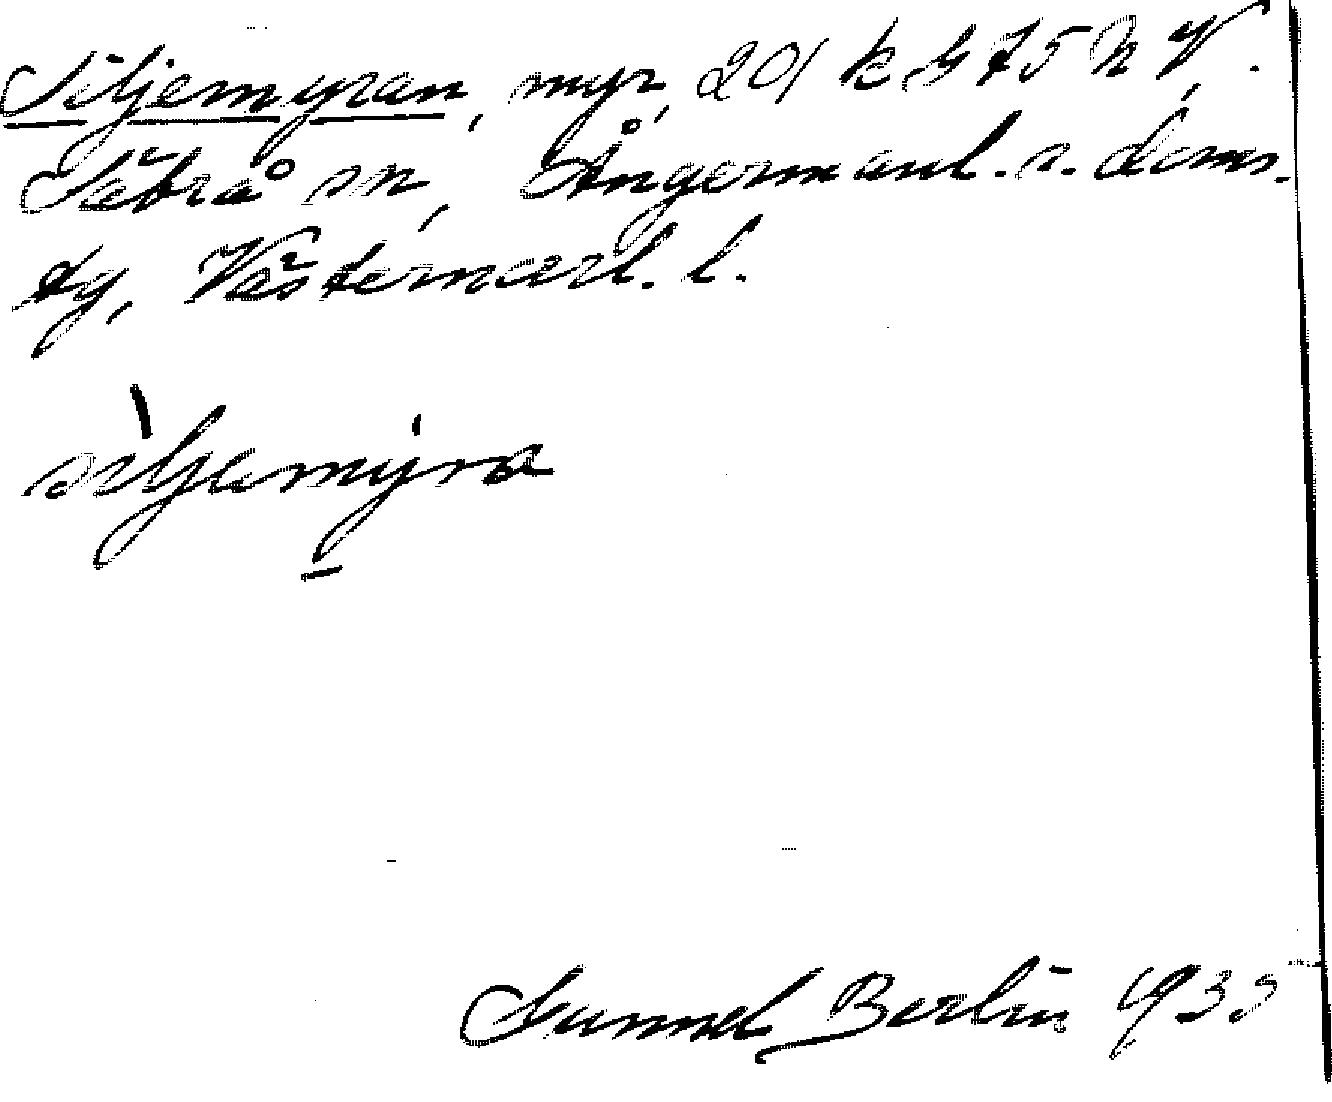 Siljemyran, myr, 201 k G 75 h V.
Säbrå sn, Ångermanl. s. doms.
tg, Västernorrl. l.
siljemyra
Gunnel Berlin 1933